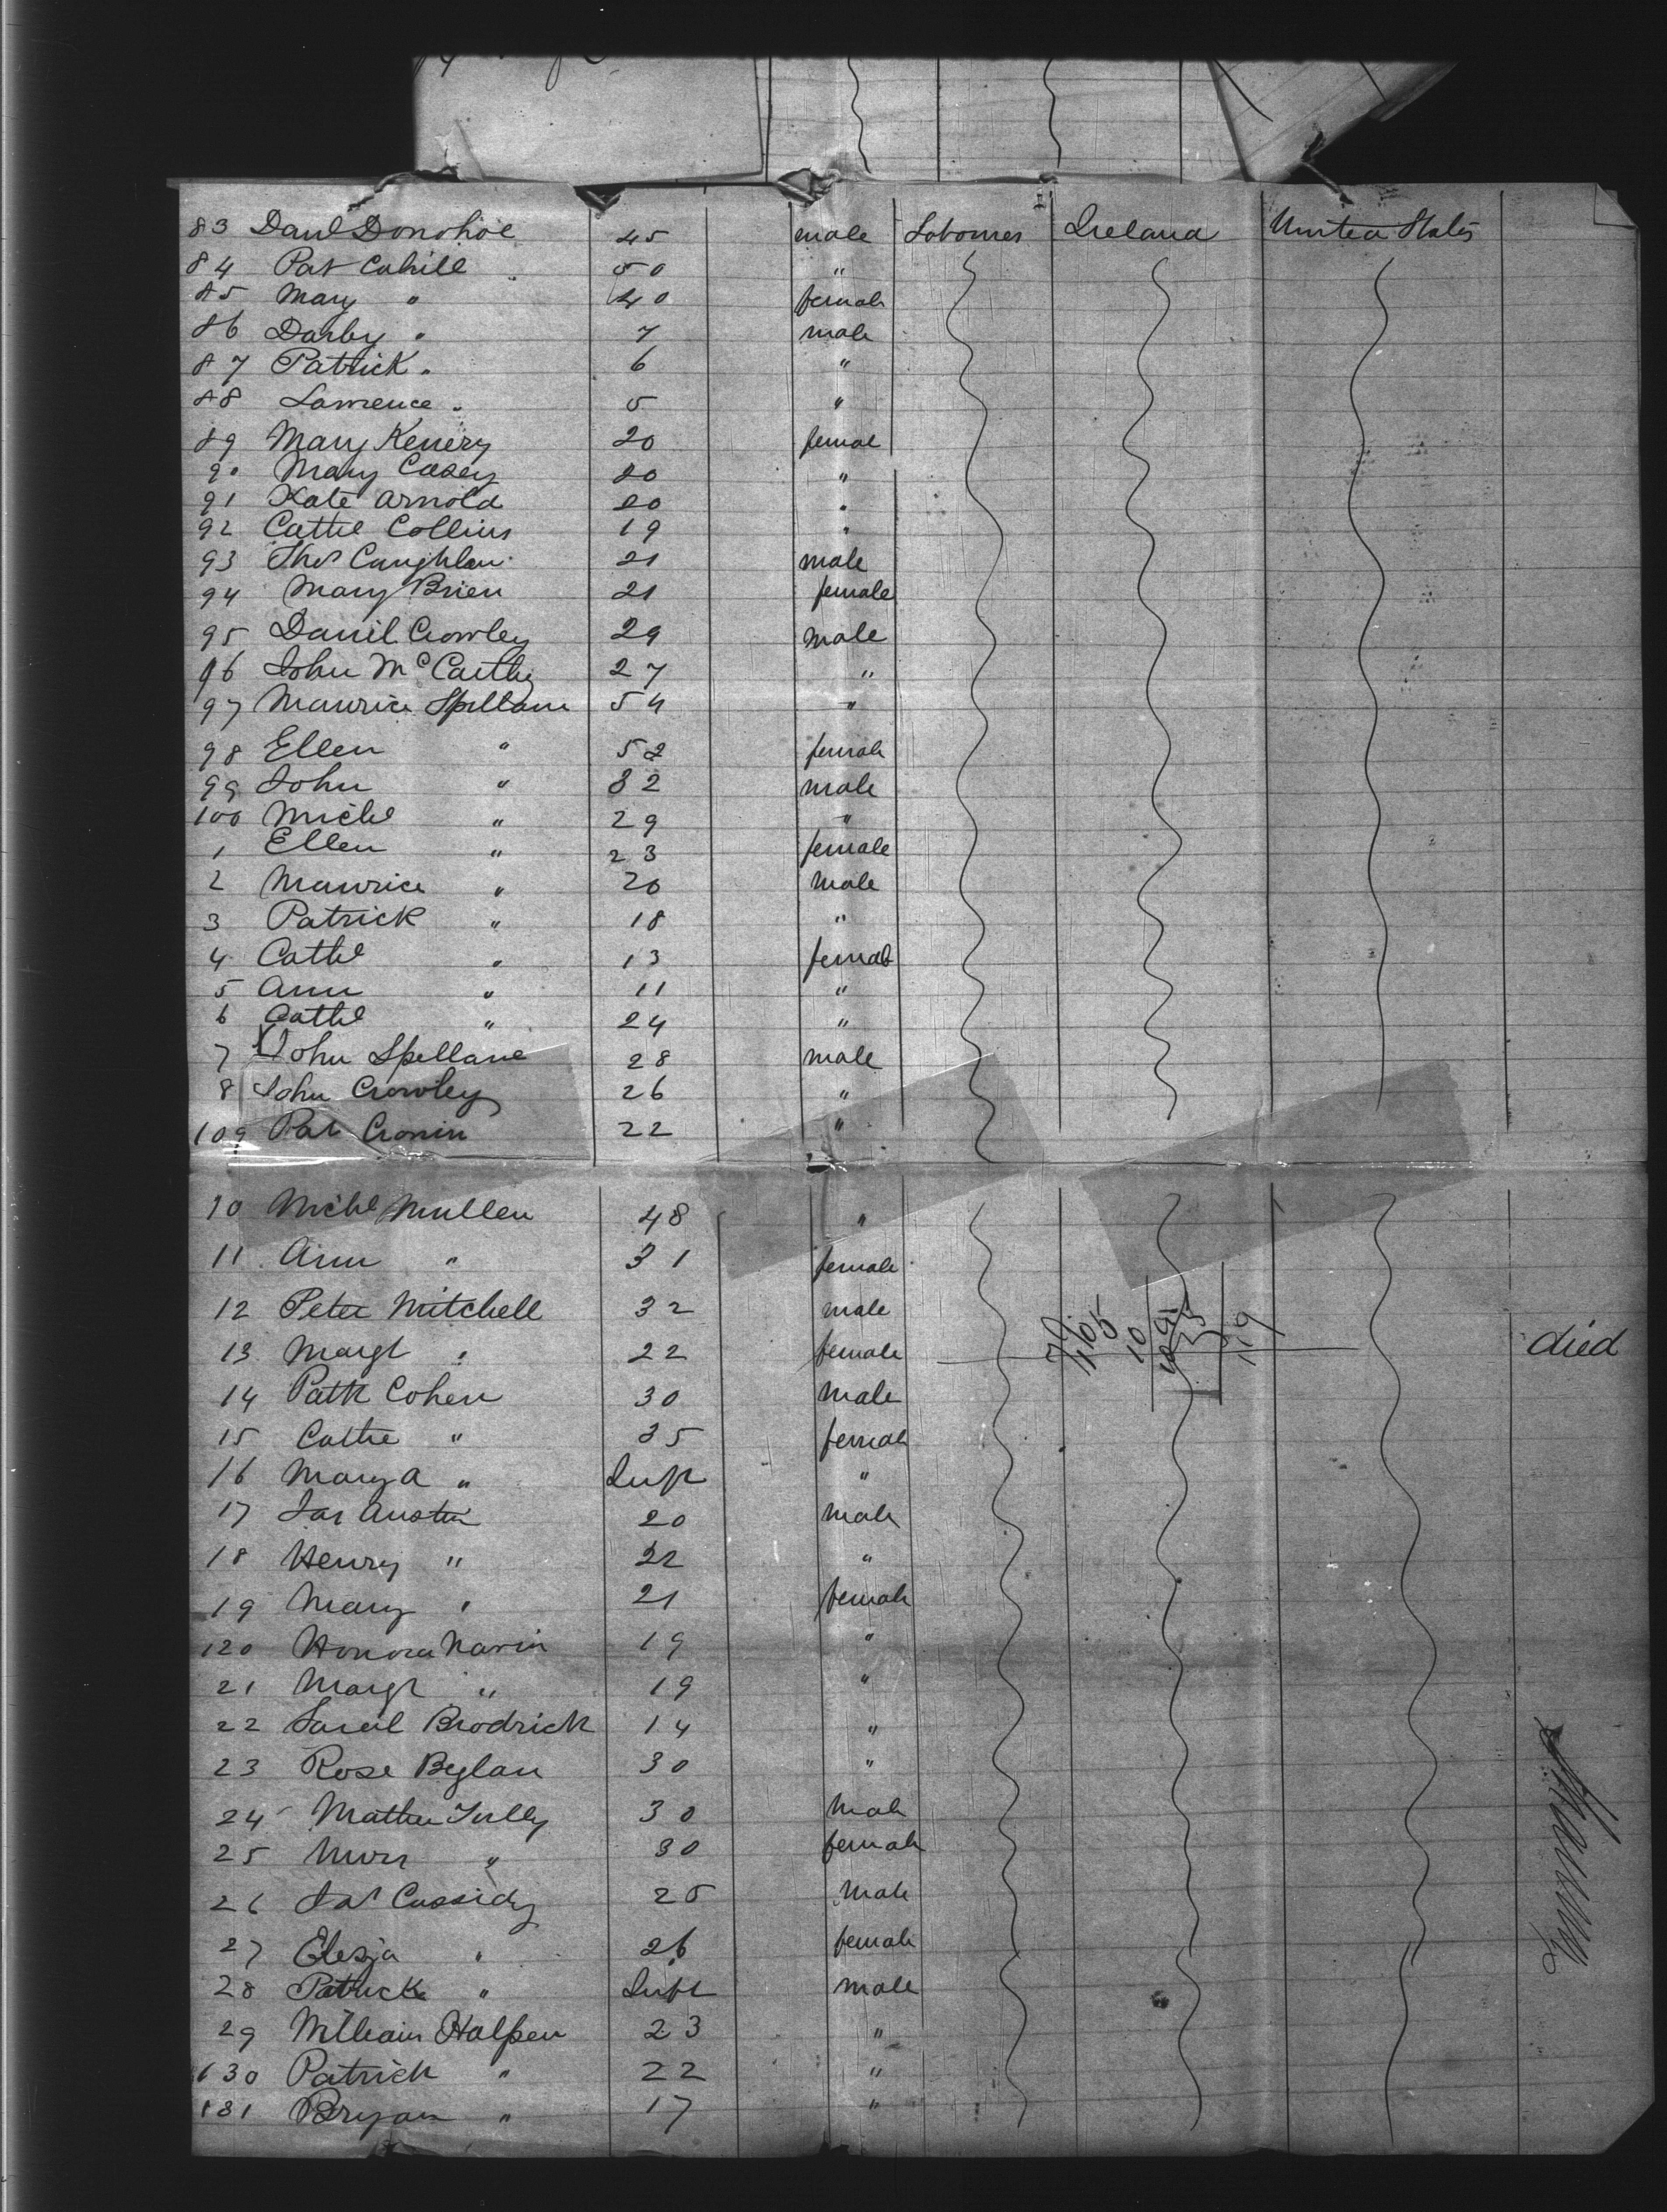 83 Danl Donohoe 45 male Labourer Ireland United States
84 Pat Cahill 50 "
85 Mary " 40 female
86 Darby " 7 male
87 Patrick " 6 "
88 Lawrence " 5 "
89 Mary Kenery 20 female
90 Mary Casey 20 "
91 Kate Arnold 20 "
92 Cathe Collins 19 "
93 Thos Caughlan 21 male
94 Mary Brien 21 female
95 Daniel Crowley 29 male
96 John McCarthy 27 "
97 Maurice Spillane 54 "
98 Ellen " 52 female
99 John " 32 male
100 Michl " 29 "
1 Ellen " 23 female
2 Maurice " 20 male
3 Patrick " 18 "
4 Cathe " 13 female
5 Ann " 11 "
6 Cathe " 24 "
7 John Spellane 28 male
8 John Crowley 26 "
109 Pat Cronin 22 "
10 Michl Mullen 48 "
11 Ann " 31 female
12 Peter Mitchell 32 male
13 Margt " 22 female died
14 Patk Cohen 30 male
15 Cathe " 35 female
16 Mary A " Inft "
17 Jas Austin 20 male
18 Henry " 22 "
19 Mary " 21 female
120 Honora Navin 19 "
21 Margt " 19 "
22 Brodrick 14 "
23 Rose Beglan 30 "
24 Mathew Tully 30 male
25 " 30 female
26 Jas Cassidy 25 male
27 Eliza " 26 female
28 Patrick " Inft male
29 William Halpen 23 "
130 Patrick " 22 "
131 Bryan " 17 "